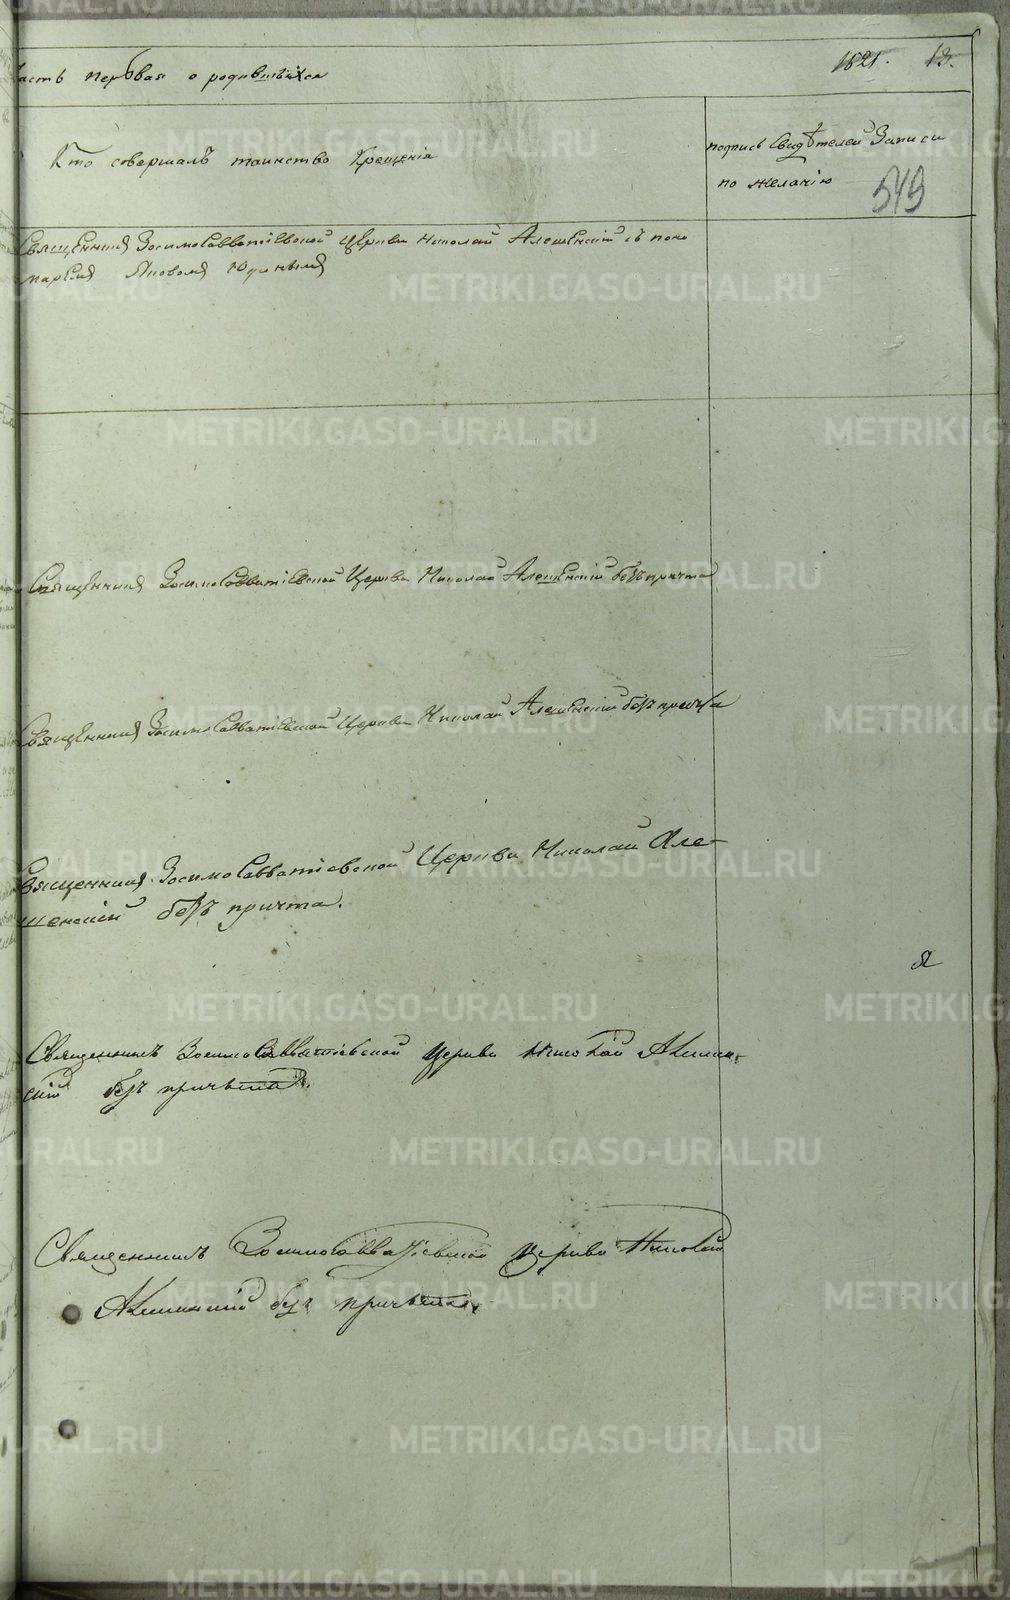 часть первая о родившихся 1821. 13.
Кто совершалъ таинство Крещенія
подпись Свидѣтелей Записи
по желанію
Священникъ ЗосимоСавватіевской церкви Николай Алешенскій съ поно
маремъ Яковомъ
Священникъ ЗосимоСавватіевской Церкви Николай Алешенскій безъ причта
Священникъ ЗосимоСавватіевской Церкви Николай Алешенскій безъ причта
Священникъ ЗосимоСавватіевской Церкви Николай Але-
шенскій безъ причта.
Священникъ ЗосимоСавватіевской церкви Николай
скій безъ причта.
Священникъ ЗосимоСавватіевской церкви Николай
безъ причта
METRIKI.GASO-URAL.RU